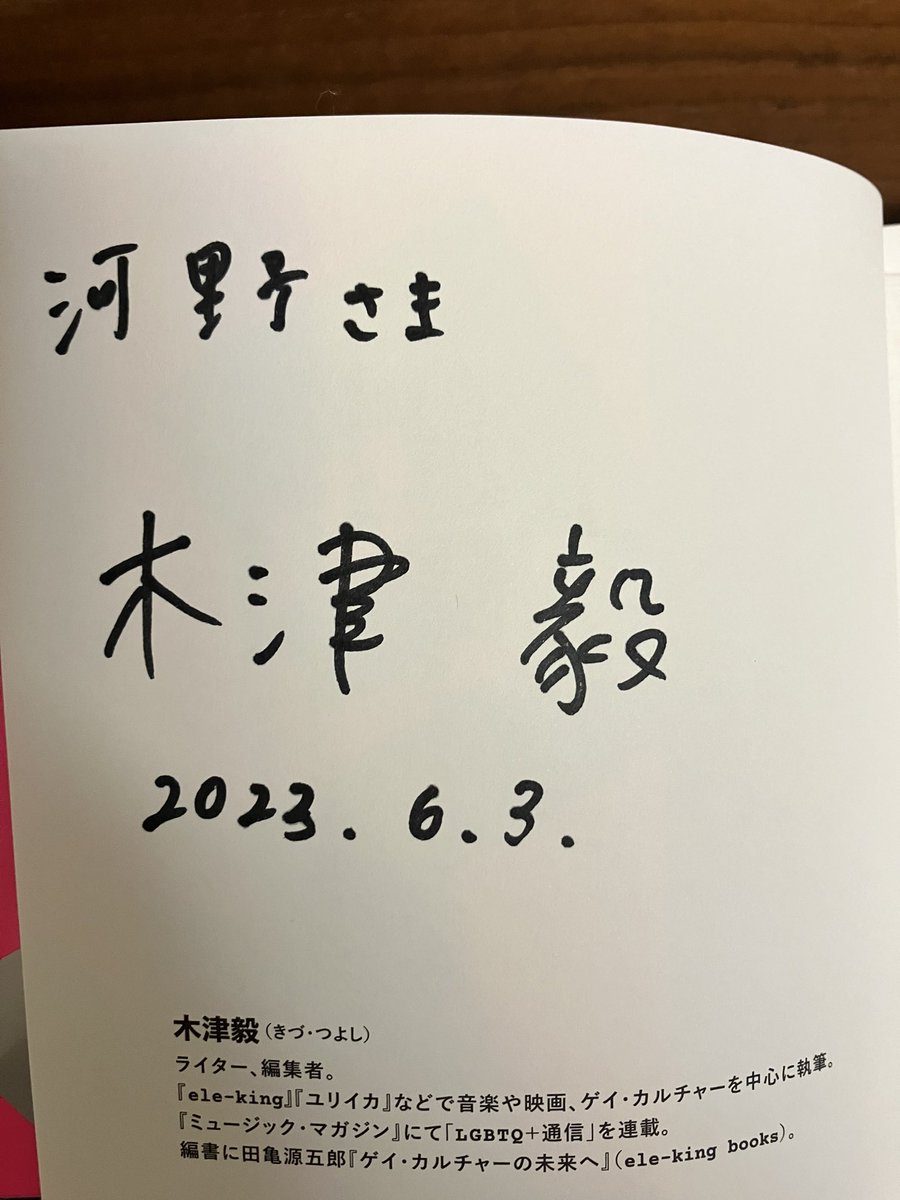 河野さま
木津 毅
2023.6.3.
木津毅(きづ・つよし)
ライター、編集者。
『ele-king』『ユリイカ』などで音楽や映画、ゲイ・カルチャーを中心に執筆。
『ミュージック・マガジン』にて「LGBTQ+通信」を連載。
編書に田亀源五郎『ゲイ・カルチャーの未来へ』(ele-king books)。